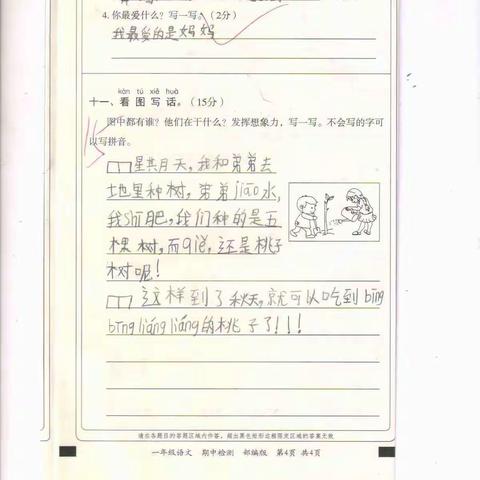 4. 你最爱什么？写一写。（2分）
我最爱的是妈妈
kàn tú xiě huà
十一、看图写话。（15分）
图中都有谁？他们在干什么？发挥想象力，写一写。不会写的字可
以写拼音。
15
星其月天，我和弟弟去
地里种树，弟弟jiāo水，
我shī肥，我们种的是五
棵树，而q说，还是桃子
树呢！
这样到了秋天，就可以吃到bīng
bīng liáng liáng的桃子了！！！
请在各题目的答题区域内作答，超出黑色矩形边框限定区域的答案无效
一年级语文 期中检测 部编版 第4页 共4页